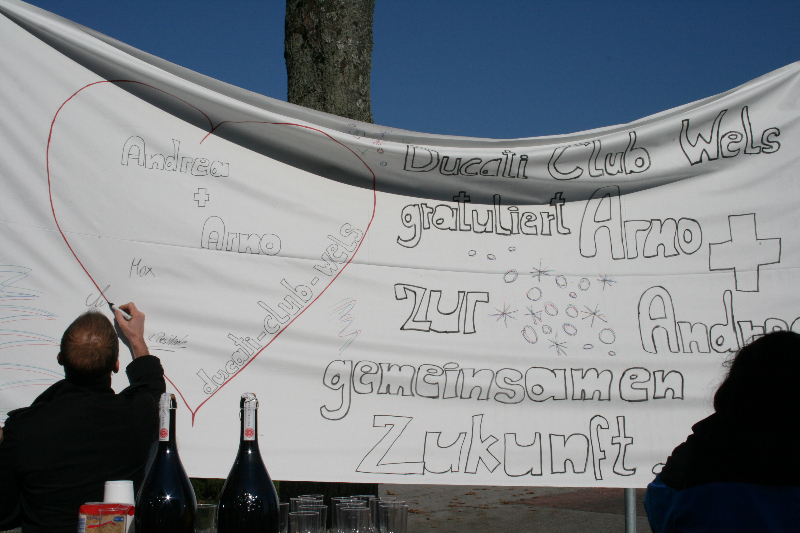 Andrea
+
Arno
Max
ducati-club-wels
Ducati Club Wels
gratuliert Arno +
zur Andrea
gemeinsamen
Zukunft.